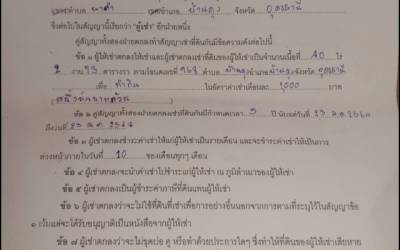 ตำบล นาคำ อำเภอ บ้านดุง จังหวัด อุดรธานี
ซึ่งต่อไปในสัญญานี้เรียกว่า "ผู้เช่า" อีกฝ่ายหนึ่ง
คู่สัญญาทั้งสองฝ่ายตกลงทำสัญญาเช่าที่ดินกันมีข้อความดังต่อไปนี้
ผู้ให้เช่าตกลงให้เช่าและผู้เช่าตกลงเช่าที่ดินของผู้ให้เช่าเป็นจำนวนเนื้อที่ 10 ไร่
2 งาน 93 ตารางวา ตามโฉนดเลขที่ ตำบล บ้านดุง อำเภอ บ้านดุง จังหวัด อุดรธานี
เพื่อ ทำกิน ในอัตราค่าเช่าเดือนละ 1,000 บาท
(หนึ่งพันบาทถ้วน)
ข้อ ๒ คู่สัญญาทั้งสองฝ่ายตกลงเช่าที่ดินกันมีกำหนดเวลา 3 ปี นับแต่วันที่
ถึงวันที่
ข้อ ๓ ผู้เช่าตกลงจะชำระค่าเช่าให้แก่ผู้ให้เช่าเป็นรายเดือน และจะชำระค่าเช่าให้เป็นการ
ล่วงหน้าภายในวันที่ 10 ของเดือนทุกๆ เดือน
ข้อ ๔ ผู้เช่าตกลงจะนำค่าเช่าไปชำระแก่ผู้ให้เช่า ณ ภูมิลำเนาของผู้ให้เช่า
ข้อ ๕ ผู้เช่าตกลงจะเป็นผู้ชำระค่าภาษีที่ดินแทนผู้ให้เช่า
ข้อ ๖ ผู้เช่าตกลงว่าจะไม่ใช้ที่ดินที่เช่าเพื่อการอย่างอื่นนอกจากการตามที่ระบุไว้ในสัญญาข้อ
๑ เว้นแต่จะได้รับอนุญาตเป็นหนังสือจากผู้ให้เช่า
ข้อ ๗ ผู้เช่าตกลงว่าจะไม่ขุดบ่อ คู หรือทำด้วยประการใดๆ ซึ่งทำให้ที่ดินของผู้ให้เช่าเสียหาย